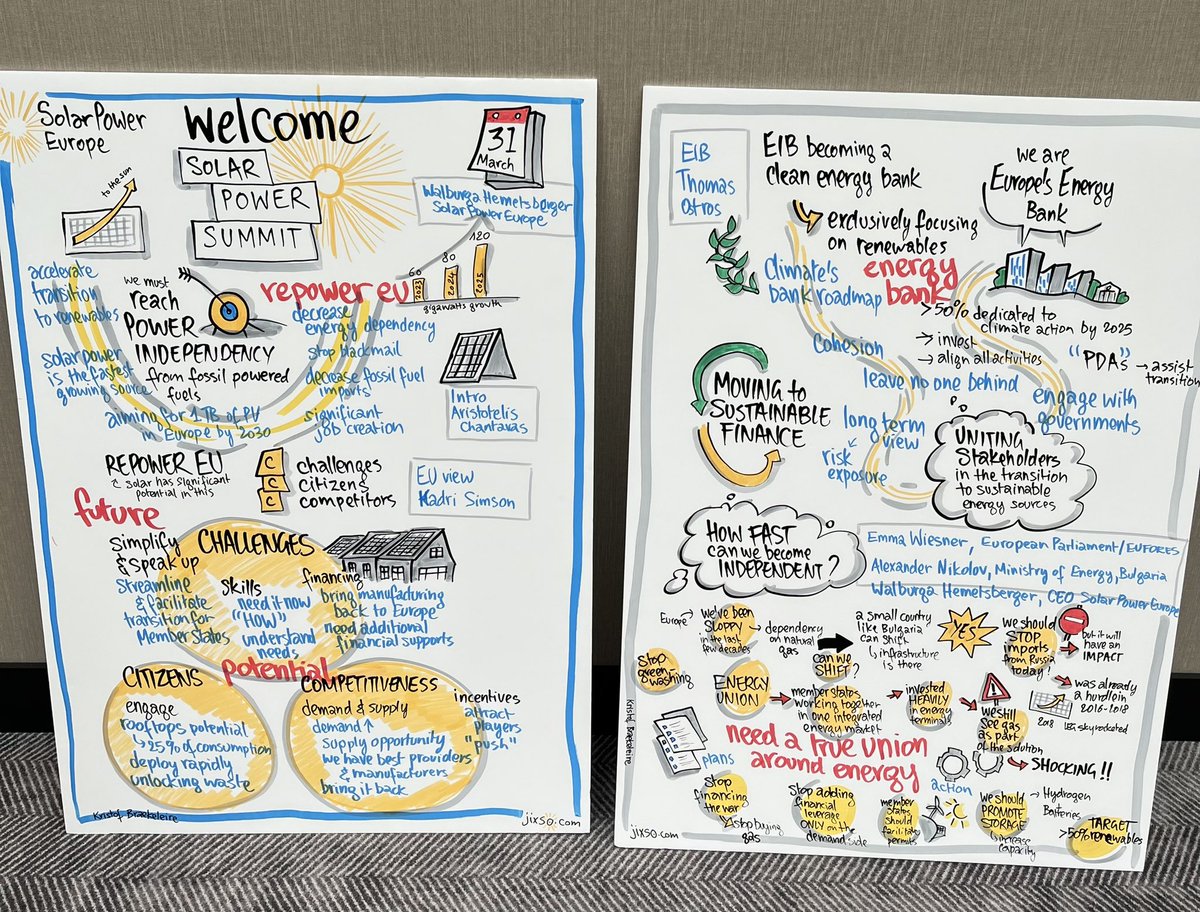 SolarPower
Europe
Welcome
SOLAR
POWER
SUMMIT
31
March
Walburga Hemetsberger
SolarPower Europe
to the sun
accelerate
transition
to renewables
solar power
is the fastest
growing source
we must
reach
POWER
INDEPENDENCY
from fossil powered
fuels
aiming for 1 TB of PV
in Europe by 2030
repower eu
decrease
energy dependency
stop blackmail
decrease fossil fuel
imports
significant
job creation
60
80
120
2023
2024
2025
gigawatts growth
Intro
Aristotelis
Chantavas
REPOWER EU
solar has significant
potential in this
C
C
C
challenges
citizens
competitors
EU view
Kadri Simson
future
simplify
& speak up
Streamline
& facilitate
transition for
Member States
CHALLENGES
skills
need it now
"HOW"
understand
needs
financing
bring manufacturing
back to Europe
need additional
financial supports
potential
CITIZENS
engage
rooftops potential
→ 25% of consumption
deploy rapidly
unlocking waste
COMPETITIVENESS
demand & supply
demand ↑
supply opportunity
we have best providers
& manufacturers
bring it back
incentives
attract
players
"push"
Kristof Braekeleire
jixso.com
EIB
Thomas
Ostros
EIB becoming a
clean energy bank
exclusively focusing
on renewables
we are
Europe's Energy
Bank
Climate's
bank roadmap
energy
bank
>50% dedicated to
climate action by 2025
→ invest
→ align all activities
"PDAs"
→ assist
transition
Cohesion
leave no one behind
engage with
governments
MOVING to
SUSTAINABLE
FINANCE
long term
view
risk
exposure
UNITING
Stakeholders
in the transition
to sustainable
energy sources
HOW FAST
can we become
INDEPENDENT?
Emma Wiesner, European Parliament/EUFORES
Alexander Nikolov, Ministry of Energy, Bulgaria
Walburga Hemetsberger, CEO SolarPower Europe
Europe →
we've been
SLOPPY
in the last
few decades
→ dependency
on natural
gas
can we
SHIFT?
a small country
like Bulgaria
can shift
infrastructure
is there
YES
we should
STOP
imports
from Russia
today!
but it will
have an
IMPACT
stop
green
washing
ENERGY
UNION
member states
working together
in one integrated
energy market
invested
HEAVILY
in energy
terminals
we still
see gas
as part
of the solution
was already
a hurdle in
2016-2018
2018
skyrocketed
SHOCKING!!
need a true union
around energy
plans
action
Stop
financing
the war
stop buying
gas
Stop adding
financial
leverage
ONLY on the
demand side
member
states
should
facilitate
permits
we should
PROMOTE
STORAGE
increase
capacity
→ Hydrogen
→ Batteries
TARGET
>50% renewables
Kristof Braekeleire
jixso.com